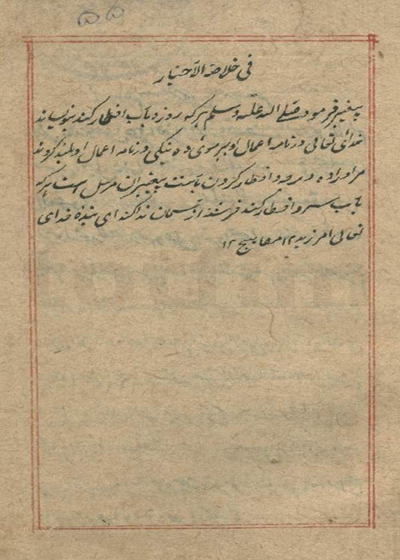 فی خلاصة الاخبار
پیغمبر فرمود صلی الله علیه وسلم هر که روزه بآب افطار کند بنویساند
خدای تعالی در نامه اعمال او بهر موئی ده نیکی در نامه اعمال او بلند گرداند
مر او را ده درجه و افطار کردن بآب سنت پیغمبران مرسل است هر که
بآب سرد افطار کند فرشته از آسمان ندا کند ای بنده خدای
تعالی امرزید ۱۲ مصابیح ۱۲